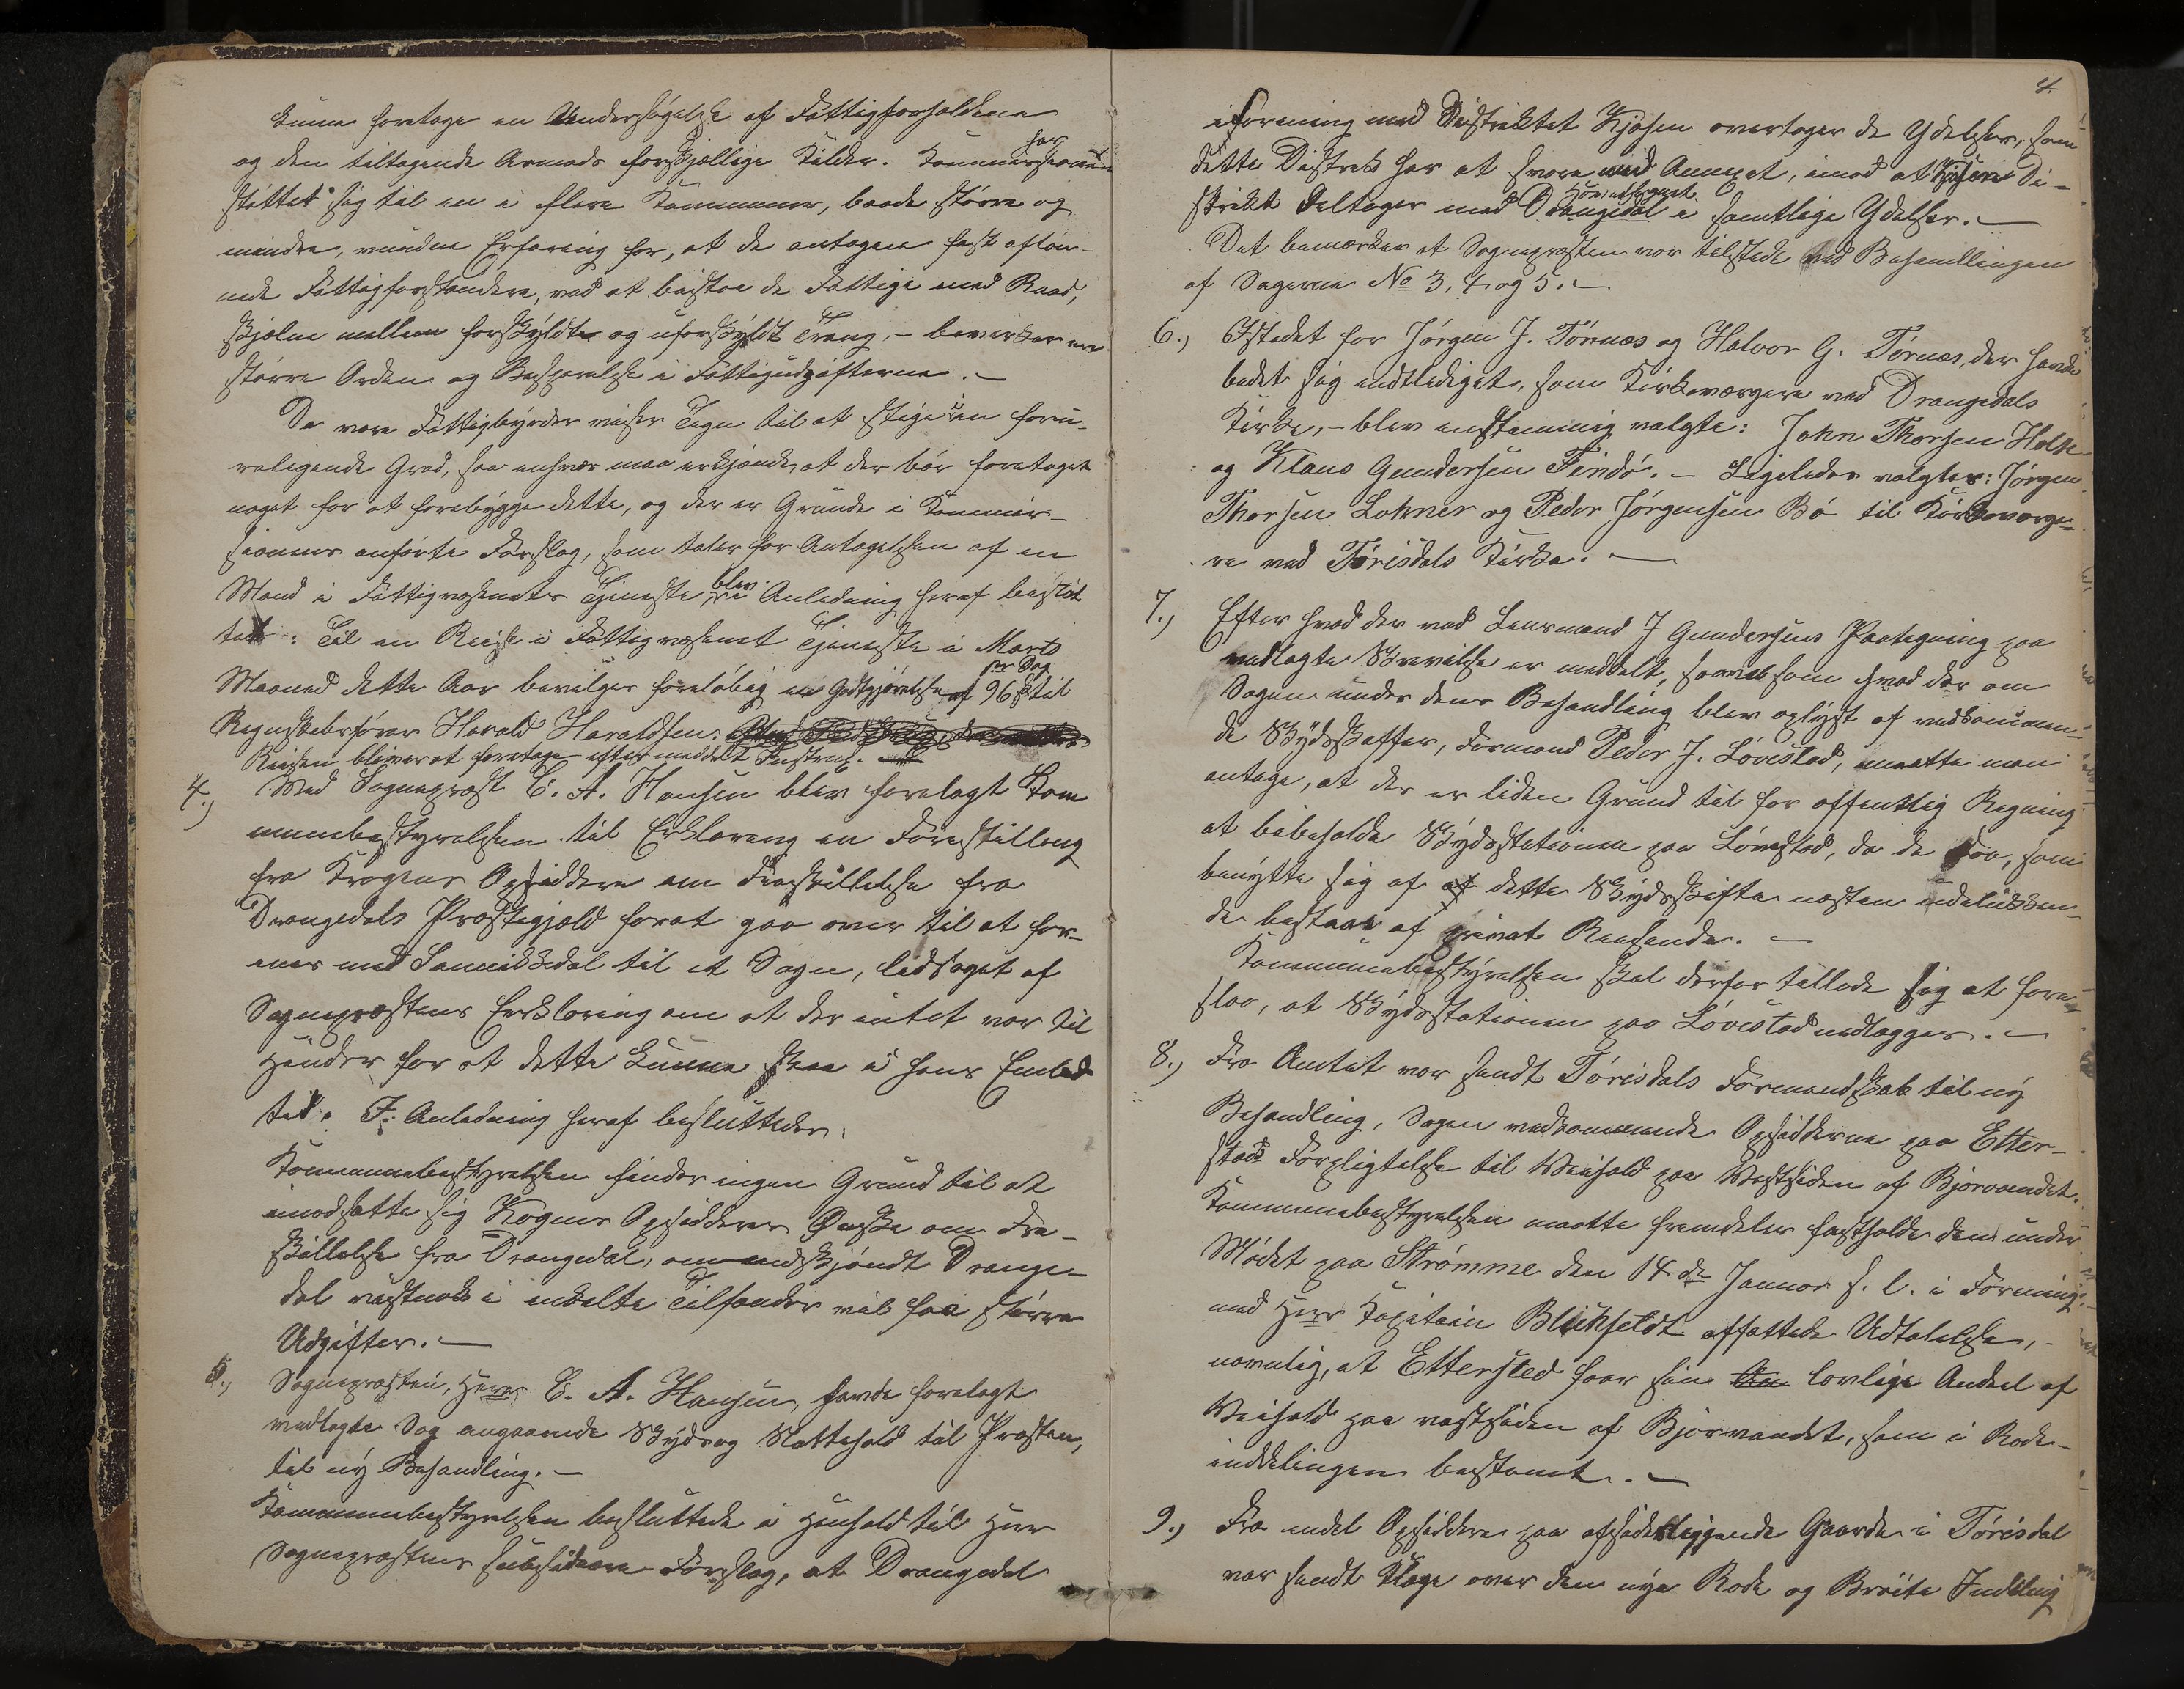 kunne foretage en Undersøgelse af Fattigforholdene
og den tiltagende Armods forskjællige Kilder. Kommissionen har
støttet sig til en i flere Kommuner, baade større og
mindre, vunden Erfaring for, at de antagne fast aflön-
nede Fattigforstandere, ved at bistaa de Fattige med Raad,
skjelne mellem forskyldt og uforskyldt Trang, – bevirker en
større Orden og Besparelse i Fattigudgifterne. –
Da vore Fattigbyrder viser Tegn til at stige i en foru-
roligende Grad, saa enhver maa erkjende, at der bör foretages
noget for at forebygge dette, og der er Grunde i Kommis-
sionens anførte Forslag, som taler for Antagelsen af en
Mand i Fattigvæsenets Tjeneste, blev i Anledning heraf beslut
tet: Til en Reise i Fattigvæsenets Tjeneste i Marts
Maaned dette Aar bevilges foreløbig en Godtgjörelse af 96 ß pr Dag til
Regnskabsfører Harald Haraldsen.
Reisen bliver at foretage efter meddelt Instrux.
4.) Ved Sognepræst C. A. Hansen blev forelagt Kom
munebestyrelsen til Erklæring en Forestilling
fra Krogens Opsiddere om Fraskillelse fra
Drangedals Præstegjæld forat gaa over til at for-
enes med Sannikedal til et Sogn, ledsaget af
Sognepræstens Erklæring om at der intet var til
Hinder for at dette kunne skee i hans Embeds
tid. I Anledning heraf besluttedes:
Kommunebestyrelsen finder ingen Grund til at
imodsætte sig Krogens Opsidderes Ønske om Fra-
skillelse fra Drangedal, omendskjöndt Drange-
dal vistnok i enkelte Tilfælder vil faa större
Udgifter. –
5.) Sognepræsten, Herr C. A. Hansen, havde forelagt
vedlagte Sag angaaende Skyds og Nattehold til Præsten,
til ny Behandling. –
Kommunebestyrelsen besluttede i Henhold til Herr
Sognepræstens subsidiære Forslag, at Drangedal
4.
i Forening med Distriktet Kjøsen overtager de Ydelser, som
dette Distrikt har at svare med Annexet, imod at Kjøsen Di-
strikt deltager med Drangedal Hovedsognet i samtlige Ydelser. –
Det bemærkes at Sognepræsten var tilstede ved Behandlingen
af Sagerne No 3, 4 og 5. –
6.) Istedet for Jörgen J. Törnæs og Halvor G. Törnæs, der havde
bedet sig entlediget, som Kirkeværgere ved Drangedals
Kirke, – blev enstemmig valgte: John Thorsen Holte
og Klaus Gundersen Findö. – Ligeledes valgtes: Jörgen
Thorsen Lohner og Peder Jörgensen Bö til Kirkeværge-
re ved Törisdals Kirke. –
7.) Efter hvad der ved Lensmand J Gundersens Paategning paa
vedlagte Skrivelse er meddelt, samt som hvad der om
Sagen under dens Behandling blev oplyst af vedkommen-
de Skydsskaffer, Formand Peder J. Lövestad, maatte man
antage, at der er liden Grund til for offentlig Regning
at bibeholde Skydsstationen paa Lövestad, da de Faa, som
benytte sig af dette Skydsskifte næsten udelukken-
de bestaar af privat Reisende. –
Kommunebestyrelsen skal derfor tillade sig at fore-
slaa, at Skydsstationen paa Lövestad nedlægges. –
8.) Fra Amtet var sendt Törisdals Formandskab til ny
Behandling, Sagen vedkommende Opsidderne paa Etter-
stads Forpligtelse til Veihold paa Vestsiden af Bjorvandet.
Kommunebestyrelsen maatte fremdeles fastholde den under
Mödet paa Strömme den 14de Januar s. l. i Forening
med Herr Kapitain Blichfeldt affattede Udtalelse, –
nemlig, at Ettersted faar sin lovlige Andeel af
Veihold paa vestsiden af Bjorvandet, som i Rode-
inddelingen bestemt. –
9.) Fra endel Opsiddere paa afsidesliggende Gaarde i Törisdal
var sendt Klage over den nye Rode og Bröite Inddeling